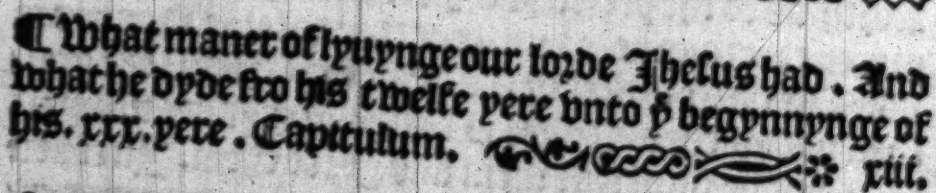 ¶ What maner of lyuynge our lorde Jhesus had. And
what he dyde fro his twelfe yere vnto yͤ begynnynge of
his. xxx. yere. Capitulum. xiii.